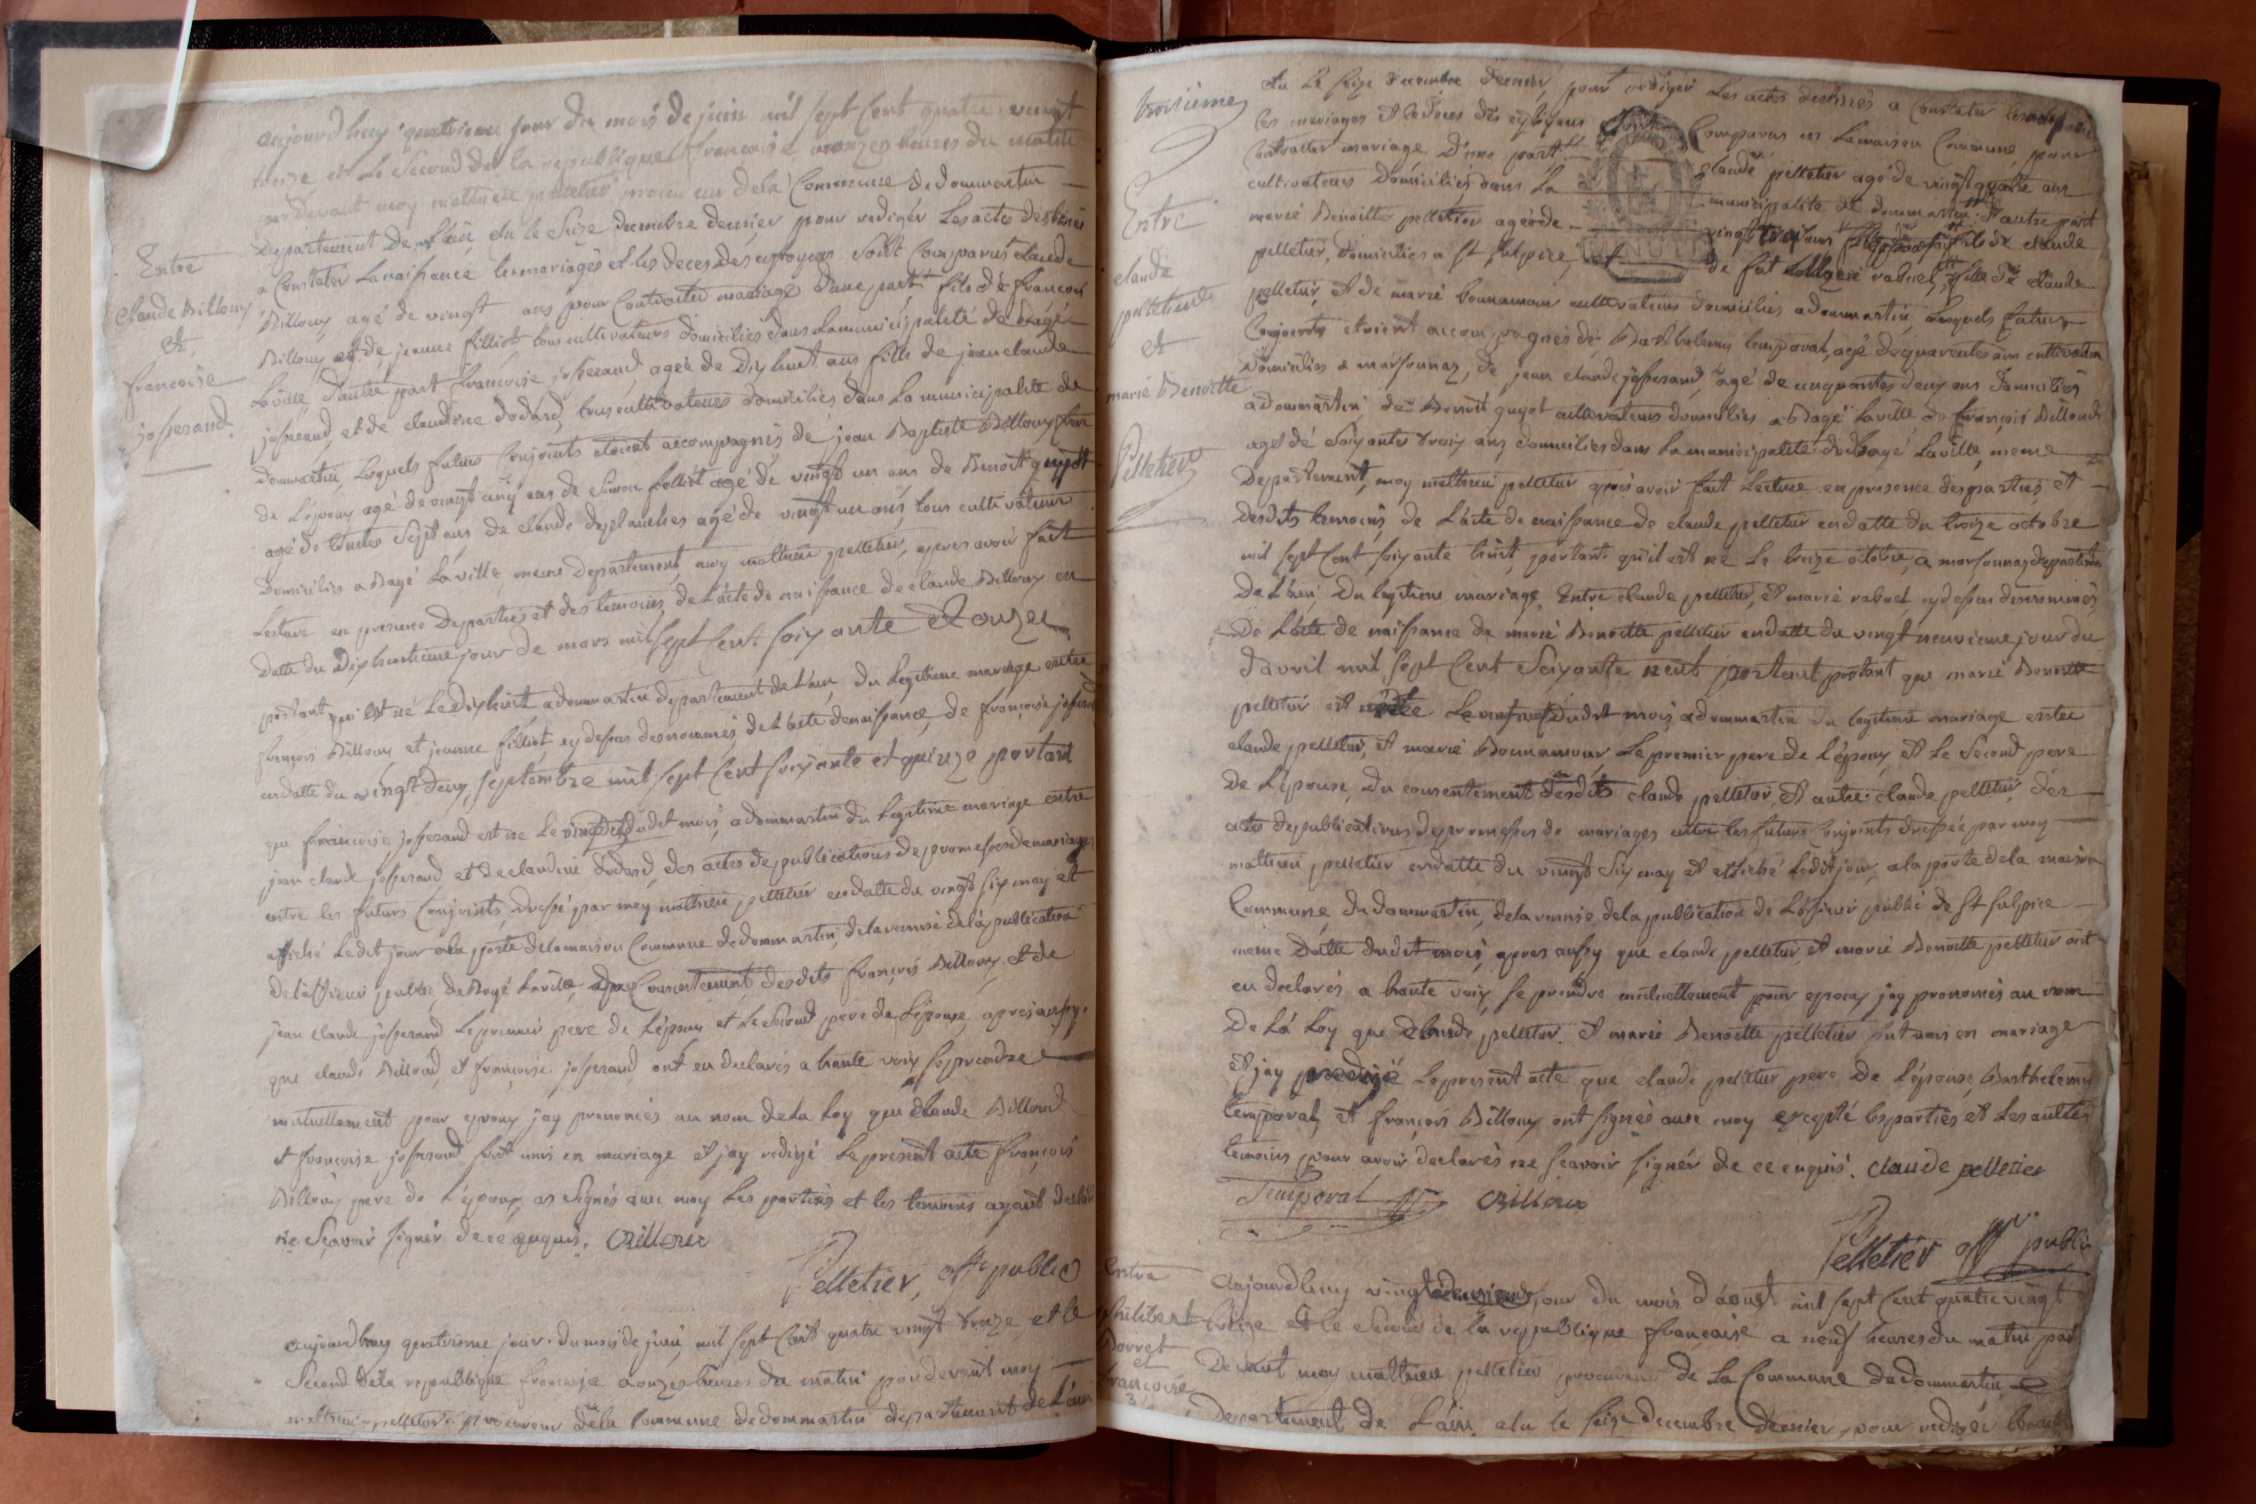 aujourdhuy quatrieme jour du mois de juin mil sept cent quatre vingt
treize et Le Second de la republique francoise a onzes heures du matin
par devant moy mathieu pelletier procureur dela Commune de dommartin
Departement de Láin, élu le Seize decembre dernier pour redigér Les actes destinés
a Constater Lanaissance les mariages et les deces des citoyens sont Comparus claude
Entre
claude Billoux
et
francoise
josserand
Billoux agé de vingt ans pour Contracter mariage d'une part fils de francois
Billoux et de jeanne filliot tous cultivateurs domiciliés dans Lamunicipalité de Bagé
Laville, dautre part francoise josserand agée de Dixhuit ans fille de jean claude
josserand, et de claudine dodard, tous cultivateurs domiciliés dans La municipalité de
dommartin, Lesquels futurs Conjoints etoient accompagnés de jean Baptiste Billoux frere
de L'époux agé de vingt cinq ans de Simon filliot agé de vingt un ans de Benoit guyot
agé de trentes Sept ans de claude desplanches agé de vingt un ans, tous cultivateurs
Domiciliés a Bagé Laville meme departement, moy mathieu pelletier, apres avoir fait
Lecture en presence Departies et des temoins de Lacte de naissance de claude Billoux en
Datte du Dixhuitieme jour de mars mil sept Cent soixante douze
portant qui est né Ledixhuit adommartin departement de Láin du Legitime mariage entre
françois Billoux et jeanne filliot cy dessus desnommés, de Láacte denaissance de françoise josserand
endatte du vingt deux Septembre mil sept Cent soixante et quinze portant
que francoise josserand est ne Le dudet mois, adommartin du Legitime mariage entre
jean claude josserand et declaudine dodard, des actes depublications depromesses demariages
entre les futurs Conjoints, dressé par moy mathieu pelletier endatte du vingt six may et
affiché Ledit jour ala porte delamaison Commune dedommartin, delaremise dela publication
de Lófficier public de Bagé Laville, Consentement desdits françois Billoux, et de
jean claude josserand Lepremier pere de L'époux et Lesecond pere de L'épouse, apres aussy
que claude Billoud, et françoise josserand ont eu declarés a haute voix seprendre
mutuellement pour epoux jay prononcés au nom dela Loy que claude Billoud
et françoise josserand sont unis en mariage et jay redigé Lepresent acte françois
Billoux pere de L'époux, as Signés avec moy Les parties et les temoins ayant declaré
ne Scavoir signér dece enquis. Billoux
Pelletier, off. public
aujourdhuy quatrieme jour du mois de juin mil sept Cent quatre vingt treize et le
Second dela republique francoise aonzes heures du matin pardevant moy
mathieu pelletier procureur dela Commune dedommartin departement de Láin
troisieme
élu Le seize decembre dernier, pour redigér Les actes destinés a Constater
les mariages et les deces des citoyens Comparus en Lamaison Commune, pour
Contracter mariage D'une part claude pelletier agé de vingt quatre ans
cultivateurs Domiciliés dans La municipalité de dommartin, d'autre part
Entre
claude
pelletier
et
marié Benoitte
Pelletier
marié Benoitte pelletier agée de vingt ans fils de claude
pelletier, domiciliés a St Sulpice, et de fut rabuel, fille de claude
pelletier, et de marié bonnamour cultivateurs domiciliés adommartin, Lesquels futurs
Conjoints etoient accompagnés de Barthelemy temporal, agé dequarentes ans cultivateur
domiciliés a marsonnaz, de jean claude josserand, agé de cinquantes deux ans domiciliés
adommartin, de Benoit guyot cultivateurs domiciliés a Bagé Laville, de françois Billoud
agés de soixantes troix ans, domiciliés dans La municipalité de Bagé Laville, meme
Departement, moy mathieu pelletier aprés avoir fait Lecture en presence desparties et
desdits temoins, de Lácte de naissance de claude pelletier endatte du treize octobre
mil sept Cent soixante huit, portant qu'il est né Le treize octobre, a marsonnaz departement
De Láin, Du legitime mariage Entre claude pelletier, et marié rabuel cydessus desnommés
De Lácte de naissance de marié Benoitte pelletier endatte du vingt neuvieme jour du
d'avril mil sept Cent Soixante neuf portant portant que marié Benoitte
pelletier est née Le dudit mois, adommartin du legitime mariage entre
claude pelletier, et marié Bonnamour, Le premier pere de L'époux, et Le Second pere
De L'épouse, Du consentement desdits claude pelletier, et autre claude pelletier, des
actes depublications depromesses de mariages entre les futurs Conjoints dressée par moy
mathieu pelletier endatte du vingt Six may et affiché Ledit jour, ala porte dela maison
Commune, de dommartin, dela remise dela publication de Lófficier public de St Sulpice
même Datte dudit mois, apres aussy que claude pelletier, et marié Benoitte pelletier ont
eu declarés a haute voix, se prendre mutuellement pour epoux, jay prononcés au nom
De La Loy que claude pelletier, et marié Benoitte pelletier sont unis en mariage
et jay redigé Lepresent acte que claude pelletier pere De L'épouse, Barthelemy
temporal, et françois Billoux ont signés avec moy excepté les parties et Les autres
temoins pour avoir declarés ne scavoir signér de ce enquis. claude pelletier
Temporal Billoux
Pelletier off public
Entre
philibert
Borret
et
francoise
Aujourdhuy vingt deuxieme jour du mois d'áoust mil sept Cent quatre vingt
treize et le Second de la republique francaise a neuf heures du matin par
Devant moy mathieu pelletier procureur de La Commune de dommartin,
Departement de Láin, elu le seize decembre dernier, pour redigér